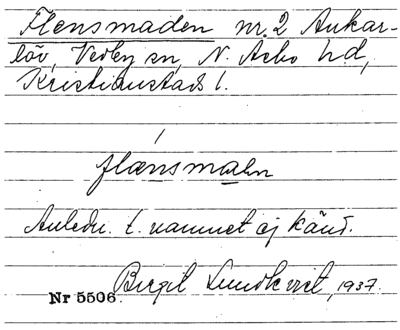 Flensmaden nr. 2 Ankar-
löv, Vedby sn, N. Åsbo hd,
Kristianstads l.
flænsmaən
Anledn. t. namnet ej känd.
Birgit Lundkvist, 1937.
Nr 5506.